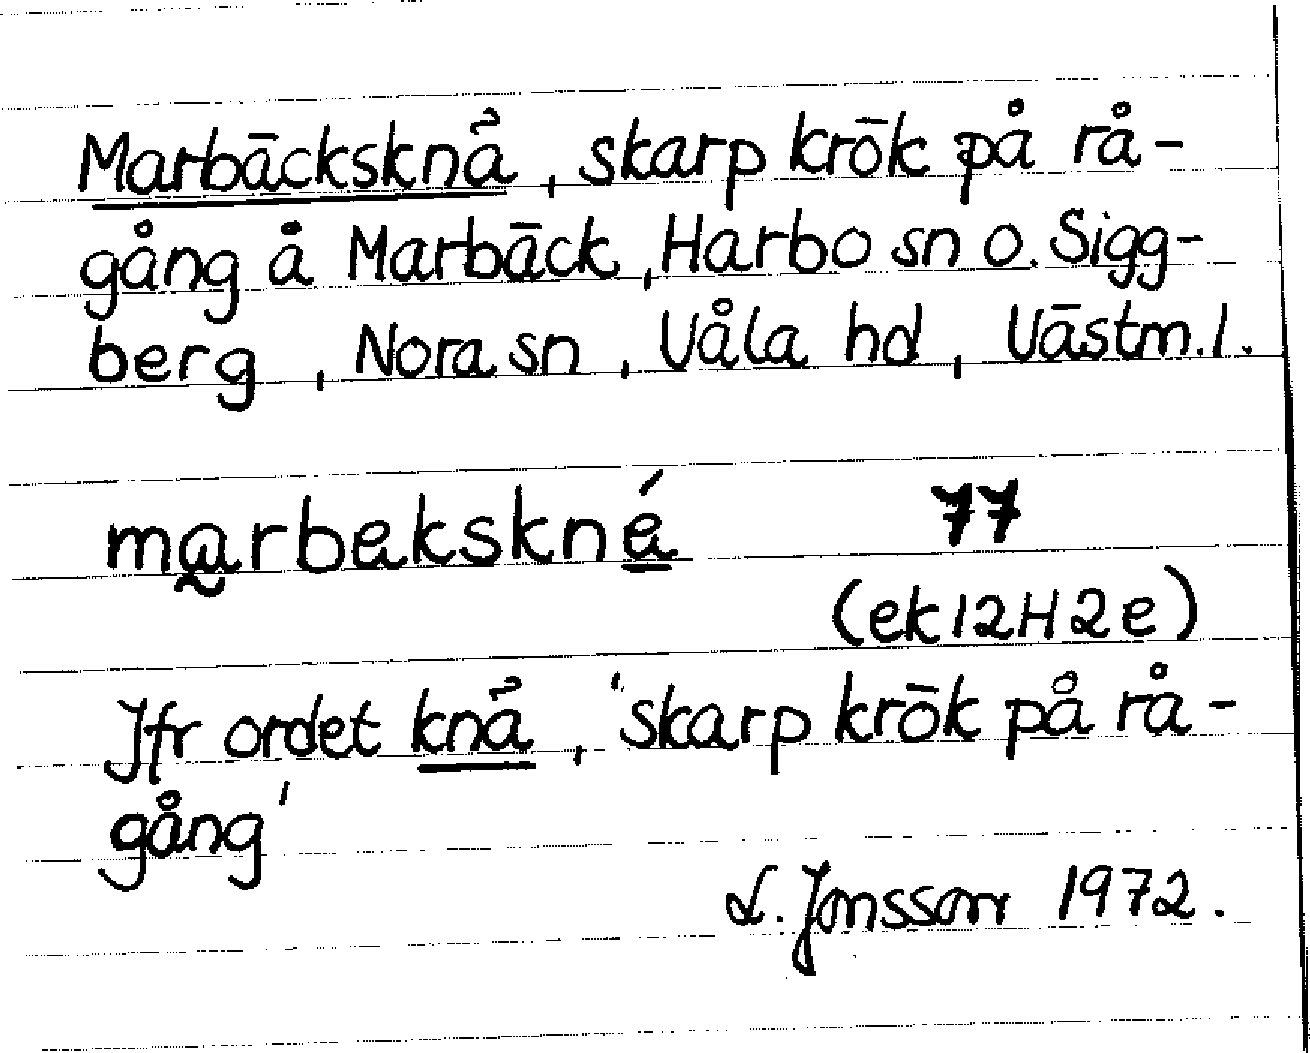 Marbäckskná, skarp krök på rå-
gång å Marbäck, Harbo sn o. Sigg-
berg, Nora sn, Våla hd, Västm.l.
marbekskné 77
(ek 12H2e)
Jfr ordet knå, 'skarp krök på rå-
gång'
L. Jonsson 1972.